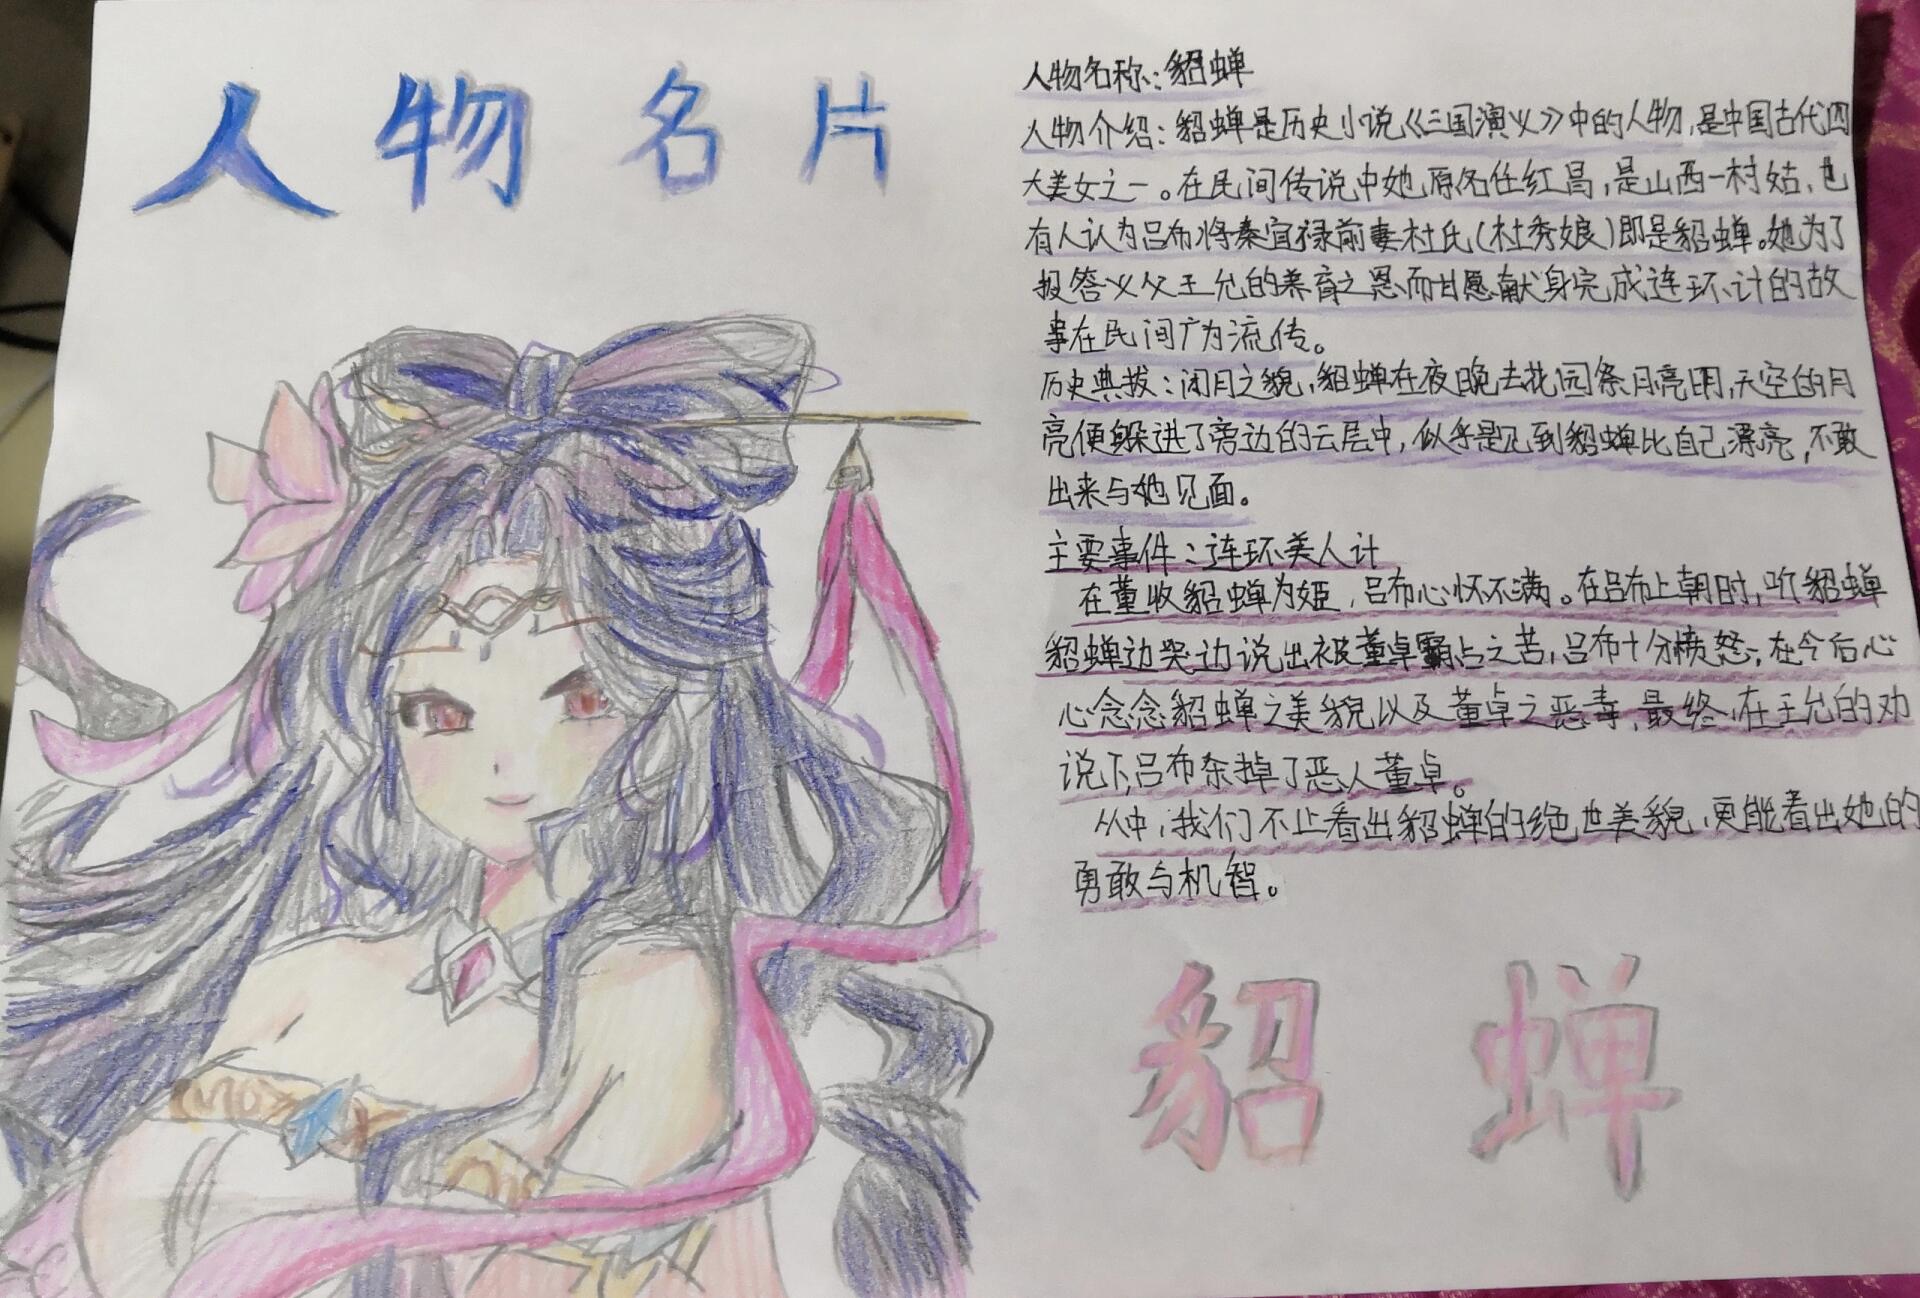 人物名片
人物名称：貂蝉
人物介绍：貂蝉是历史小说《三国演义》中的人物，是中国古代四
大美女之一。在民间传说中她原名任红昌，是山西一村姑，也
有人认为吕布将秦宜禄前妻杜氏（杜秀娘）即是貂蝉。她为了
报答义父王允的养育之恩而甘愿献身完成连环计的故
事在民间广为流传。
历史典拔：闭月之貌，貂蝉在夜晚去花园祭月亮时，天空的月
亮便躲进了旁边的云层中，似乎是见到貂蝉比自己漂亮，不敢
出来与她见面。
主要事件：连环美人计
在董收貂蝉为姬，吕布心怀不满。在吕布上朝时，听貂蝉
貂蝉边哭边说出被董卓霸占之苦，吕布十分愤怒，在今后心
心念念貂蝉之美貌以及董卓之恶毒，最终，在王允的劝
说下，吕布杀掉了恶人董卓。
从中，我们不止看出貂蝉的绝世美貌，更能看出她的
勇敢与机智。
貂蝉